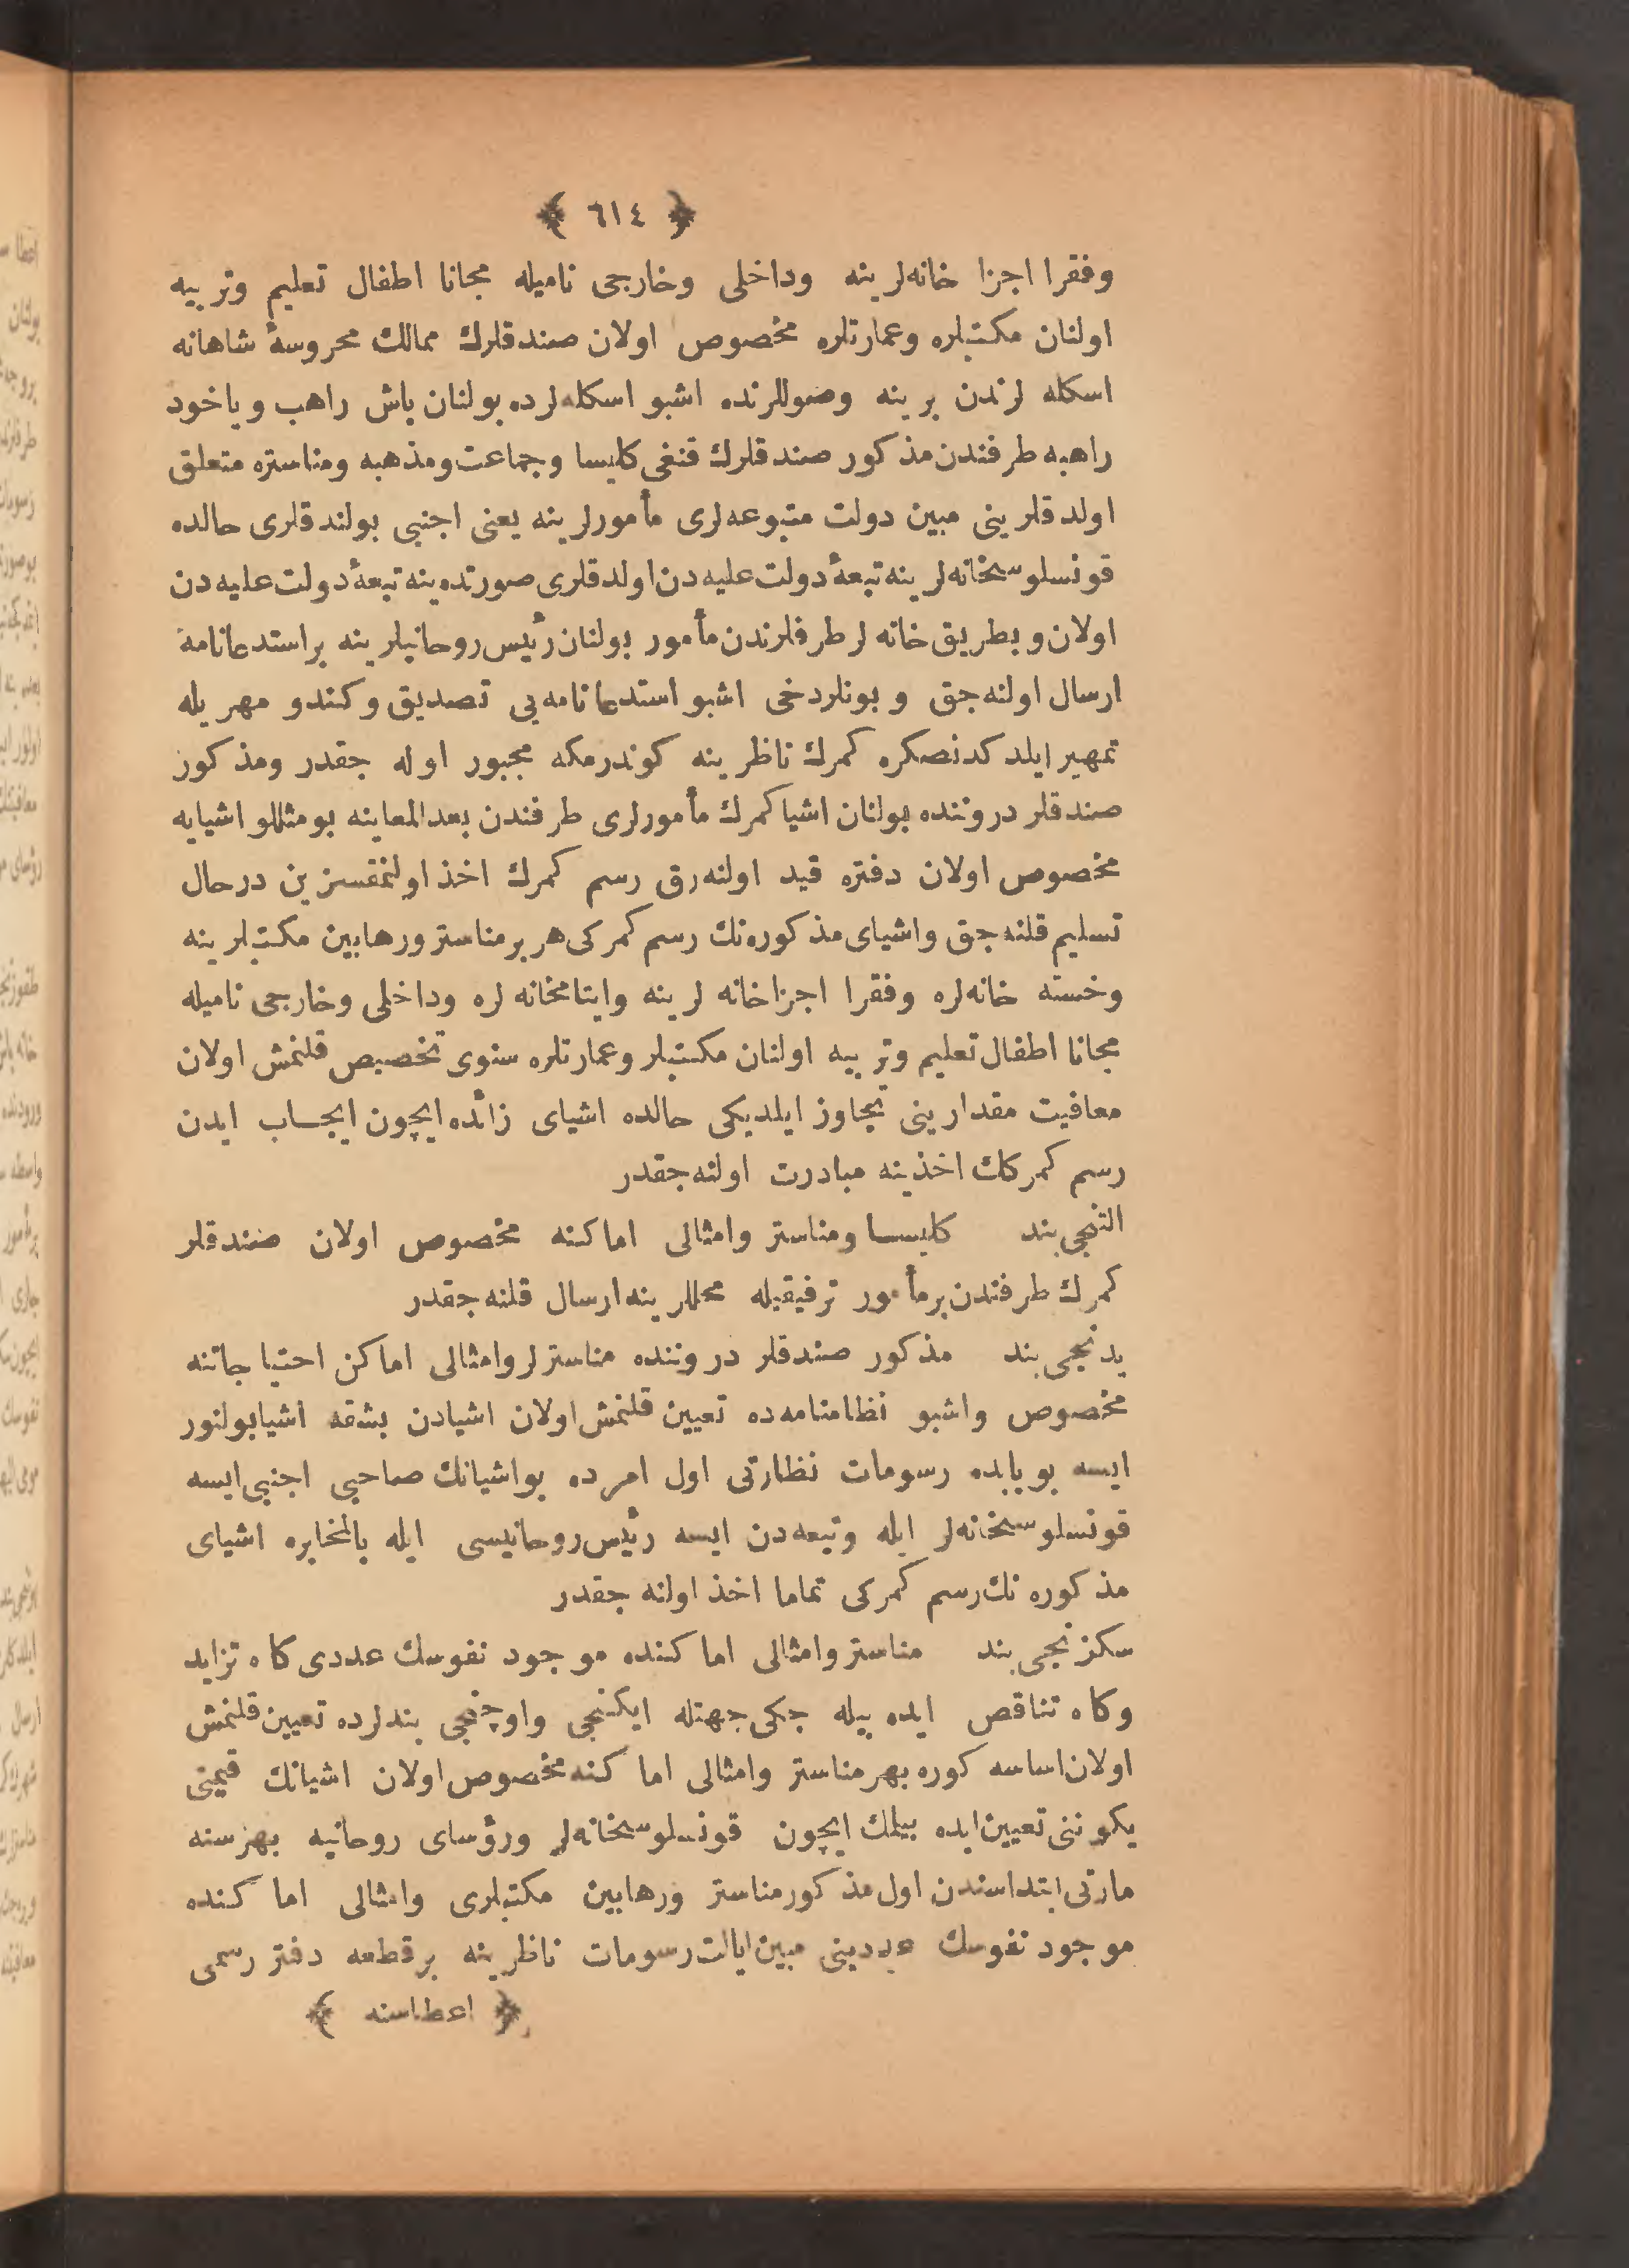 ﴿ ٦١٤ ﴾
وفقرا اجزا خانه‌لرینه وداخلی وخارجی نامیله مجانا اطفال تعلیم وتربیه
اولنان مكتبلره وعمارتلره مخصوص اولان صندقلرك ممالك محروسهٔ شاهانه
اسكله لرندن برینه وصوللرنده اشبو اسكله‌لرده بولنان باش راهب ویاخود
راهبه طرفندن مذكور صندقلرك قنغی كلیسا وجماعت ومذهبه ومناستره متعلق
اولدقلرینی مبین دولت متبوعه‌لری مأمورلرینه یعنی اجنبی بولندقلری حالده
قونسلوسخانه‌لرینه تبعهٔ دولت علیه‌دن اولدقلری صورتده ینه تبعهٔ دولت علیه‌دن
اولان وبطریق خانه لر طرفلرندن مأمور بولنان رئیس روحانیلرینه براستدعانامه
ارسال اولنه‌جق وبونلردخی اشبو استدعانامه‌یی تصدیق وكندو مهریله
تمهیر ایلدكدنصكره كمرك ناظرینه كوندرمكه مجبور اوله جقدر ومذكور
صندقلر دروننده بولنان اشیا كمرك مأمورلری طرفندن بعدالمعاینه بومثللو اشیایه
مخصوص اولان دفتره قید اولنه‌رق رسم كمرك اخذ اولنمقسزین درحال
تسلیم قلنه‌جق واشیای مذكوره‌نك رسم كمركی هر بر مناستر ورهابین مكتبلرینه
وخسته خانه‌لره وفقرا اجزاخانه لرینه وایتامخانه لره وداخلی وخارجی نامیله
مجانا اطفال تعلیم وتربیه اولنان مكتبلر وعمارتلره سنوی تخصیص قلنمش اولان
معافیت مقدارینی تجاوز ایلدیكی حالده اشیای زائده ایچون ایجاب ایدن
رسم كمركك اخذینه مبادرت اولنه‌جقدر
التنجی بند كلیسا ومناستر وامثالی اماكنه مخصوص اولان صندقلر
كمرك طرفندن برمأمور ترفیقیله محللرینه ارسال قلنه‌جقدر
یدنجی بند مذكور صندقلر دروننده مناسترلر وامثالی اماكن احتیاجاتنه
مخصوص واشبو نظامنامه‌ده تعیین قلنمش اولان اشیادن بشقه اشیابولنور
ایسه بوبابده رسومات نظارتی اول امرده بواشیانك صاحبی اجنبی ایسه
قونسلوسخانه‌لر ایله وتبعه‌دن ایسه رئیس روحانیسی ایله بالمخابره اشیای
مذكوره نك رسم كمركی تماما اخذ اولنه جقدر
سكزنجی بند مناستر وامثالی اماكنده موجود نفوسك عددی كاه تزاید
وكاه تناقص ایده بیله جكی جهتله ایكنجی واوچنجی بندلرده تعیین قلنمش
اولان اساسه كوره بهر مناستر وامثالی اماكنه مخصوص اولان اشیانك قیمتی
یكوننی تعیین ایده بیلمك ایچون قونسلوسخانه‌لر ورؤسای روحانیه بهرسنه
مارتی ابتداسندن اول مذكور مناستر ورهابین مكتبلری وامثالی اماكنده
موجود نفوسك عددینی مبین ایالت رسومات ناظرینه برقطعه دفتر رسمی
﴿ اعطاسنه ﴾